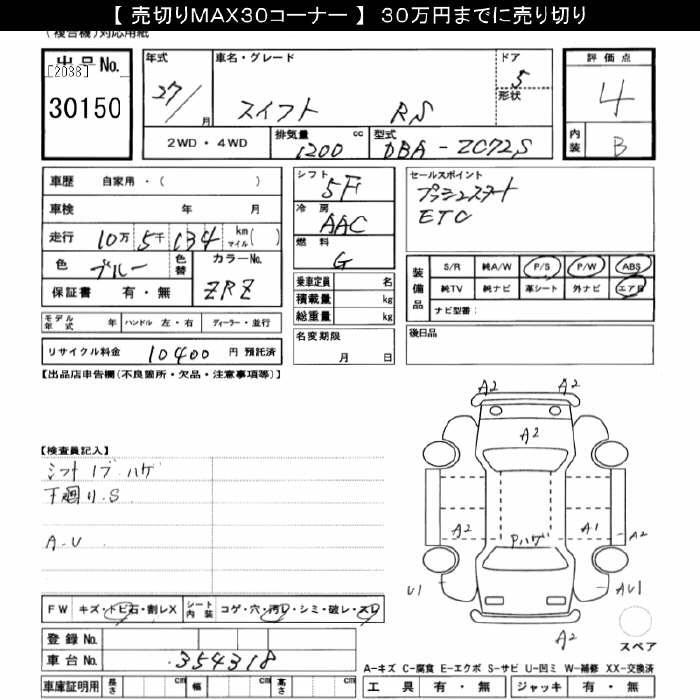 【 売切りMAX30コーナー 】 30万円までに売り切り
(複合機)対応用紙
出品No.
[2038]
30150
年式 27/ 月
車名・グレード スイフト RS
ドア 5
形状
2WD・4WD
排気量 1200 cc
型式 DBA-ZC72S
評価点 4
内装 B
車歴 自家用・( )
車検 年 月
走行 10万 5千 134 km マイル( )
色 ブルー 色替 カラーNo. ZRZ
保証書 有・無
モデル年式 年 ハンドル 左・右 ディーラー・並行
リサイクル料金 10400 円 預託済
シフト 5F
冷房 AAC
燃料 G
乗車定員 名
積載量 kg
総重量 kg
名変期限 月 日
セールスポイント
プッシュスタート
ETC
装備品 S/R 純A/W P/S P/W ABS
純TV 純ナビ 革シート 外ナビ エアB
ナビ型番:
後日品
【出品店申告欄(不良箇所・欠品・注意事項等)】
【検査員記入】
シフトノブ ハゲ
下廻り.S
A-U
A2 A2
A2
A2 Pハゲ A1 A2
U1 AU1
A2
スペア
FW キズ・トビ石・割レX シート内装 コゲ・穴・汚レ・シミ・破レ・スレ
登録No.
車台No. 354318
車庫証明用 長さ cm 幅 cm 高さ cm
A-キズ C-腐食 E-エクボ S-サビ U-凹ミ W-補修 XX-交換済
工具 有・無 ジャッキ 有・無